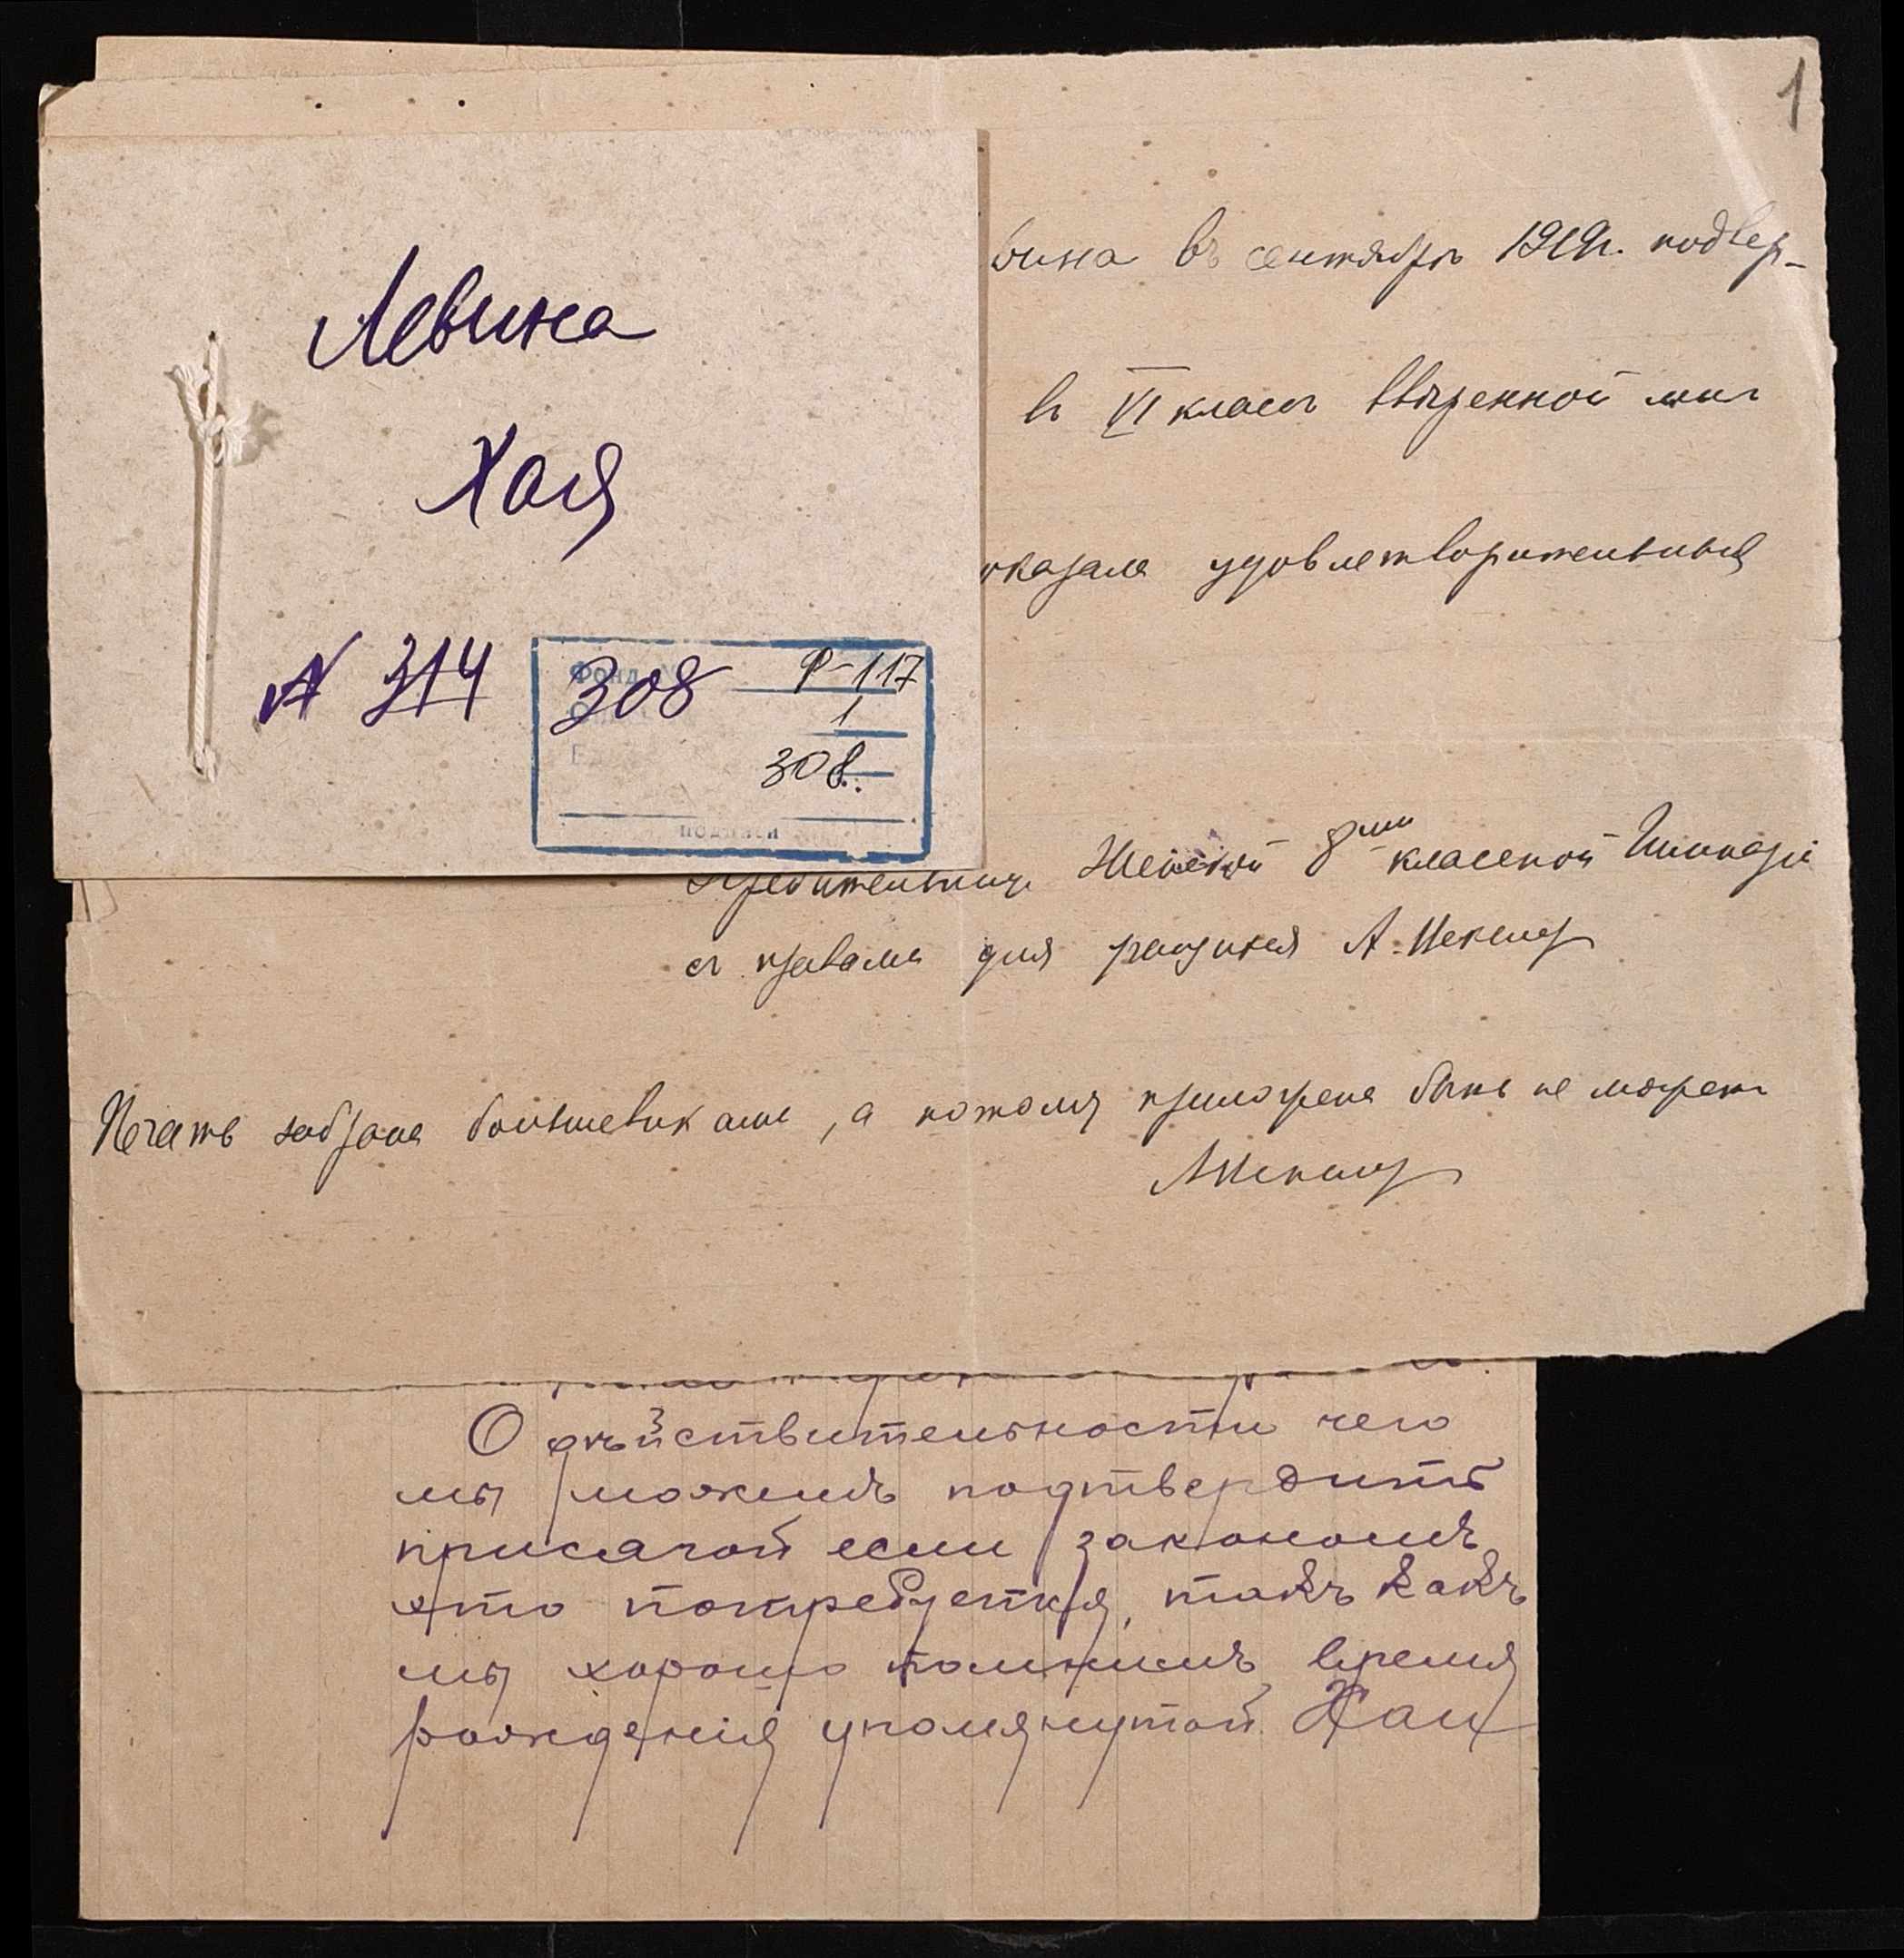 1
Левина
Хая
№ 314
308
Фонд Р-117
1
308.
подписи
вина въ сентябрѣ 1919г. подвер-
въ VI классъ ввѣренной мнѣ
оказала удовлетворительныя
Учредительница Женской 8ми классной Гимназіи
съ правами для
Печать забрана большевиками, а потому приложена быть не можетъ
О дѣйствительности чего
мы можемъ подтвердить
присягой если закономъ
это потребуется, такъ какъ
мы хорошо помнимъ время
рожденія упомянутой Хаи